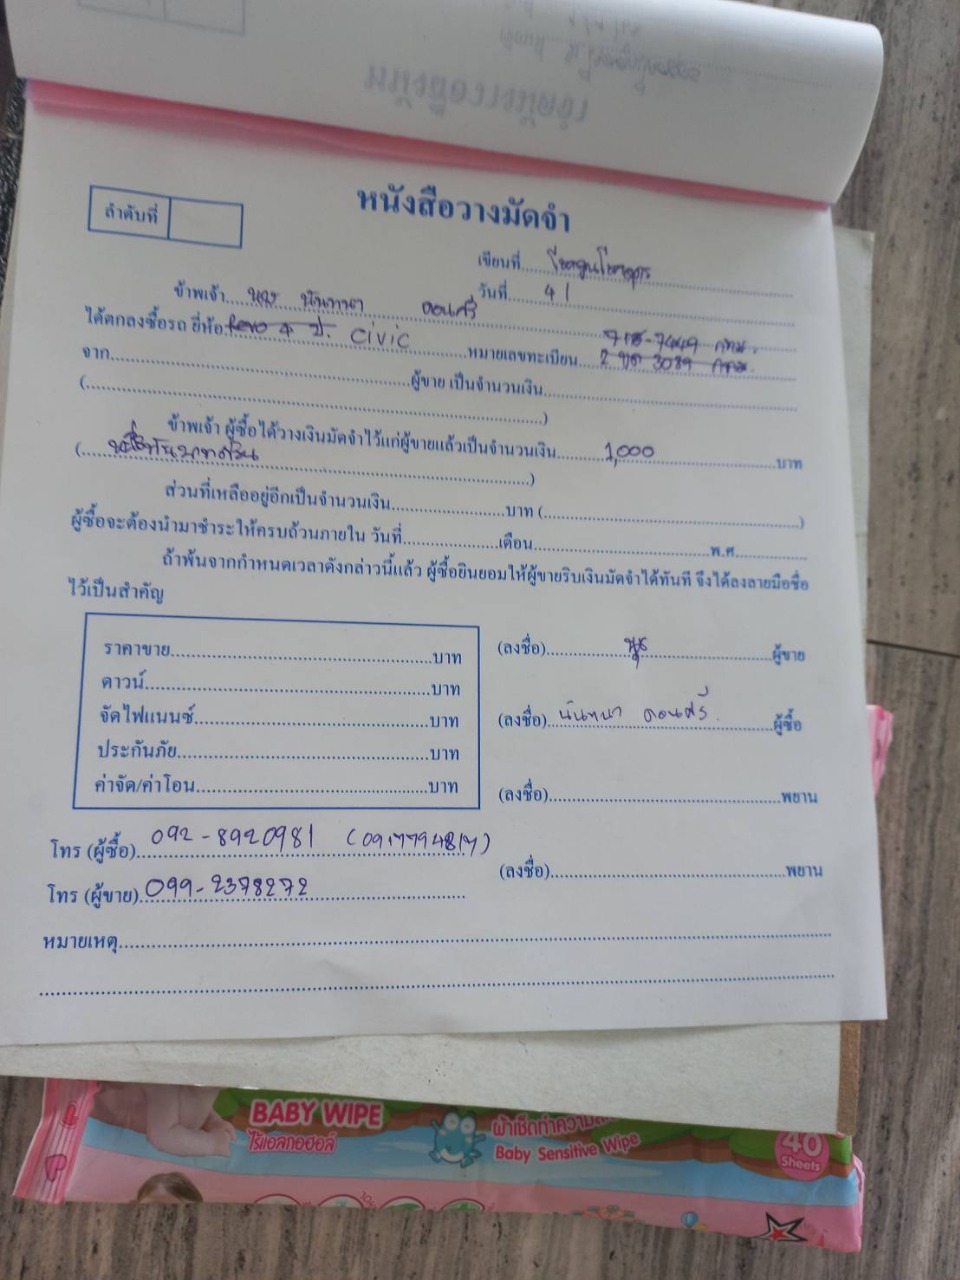 หนังสือวางมัดจำ
ลำดับที่
เขียนที่
วันที่ 4 /
ข้าพเจ้า นาง นันทนา ดอนศรี
ได้ตกลงซื้อรถ ยี่ห้อ Revo 4 ป. civic หมายเลขทะเบียน 7449 กทม.
3089 กทม.
จาก ผู้ขาย เป็นจำนวนเงิน
( )
ข้าพเจ้า ผู้ซื้อได้วางเงินมัดจำไว้แก่ผู้ขายแล้วเป็นจำนวนเงิน 1,000 บาท
( หนึ่งพันบาทถ้วน )
ส่วนที่เหลืออยู่อีกเป็นจำนวนเงิน บาท ( )
ผู้ซื้อจะต้องนำมาชำระให้ครบถ้วนภายใน วันที่ เดือน พ.ศ.
ถ้าพ้นจากกำหนดเวลาดังกล่าวนี้แล้ว ผู้ซื้อยินยอมให้ผู้ขายริบเงินมัดจำได้ทันที จึงได้ลงลายมือชื่อ
ไว้เป็นสำคัญ
ราคาขาย บาท
ดาวน์ บาท
จัดไฟแนนซ์ บาท
ประกันภัย บาท
ค่าจัด/ค่าโอน บาท
(ลงชื่อ) ผู้ขาย
(ลงชื่อ) นันทนา ดอนศรี ผู้ซื้อ
(ลงชื่อ) พยาน
(ลงชื่อ) พยาน
โทร (ผู้ซื้อ) 092-8920981
โทร (ผู้ขาย) 099-2378272
หมายเหตุ
BABY WIPE
ไร้แอลกอฮอล์
ผ้าเช็ดทำความ
Baby Sensitive Wipe
40
Sheets